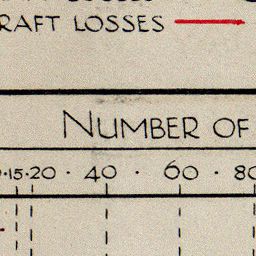 RAFT LOSSES
NUMBER OF
·15·20 · 40 · 60 · 80